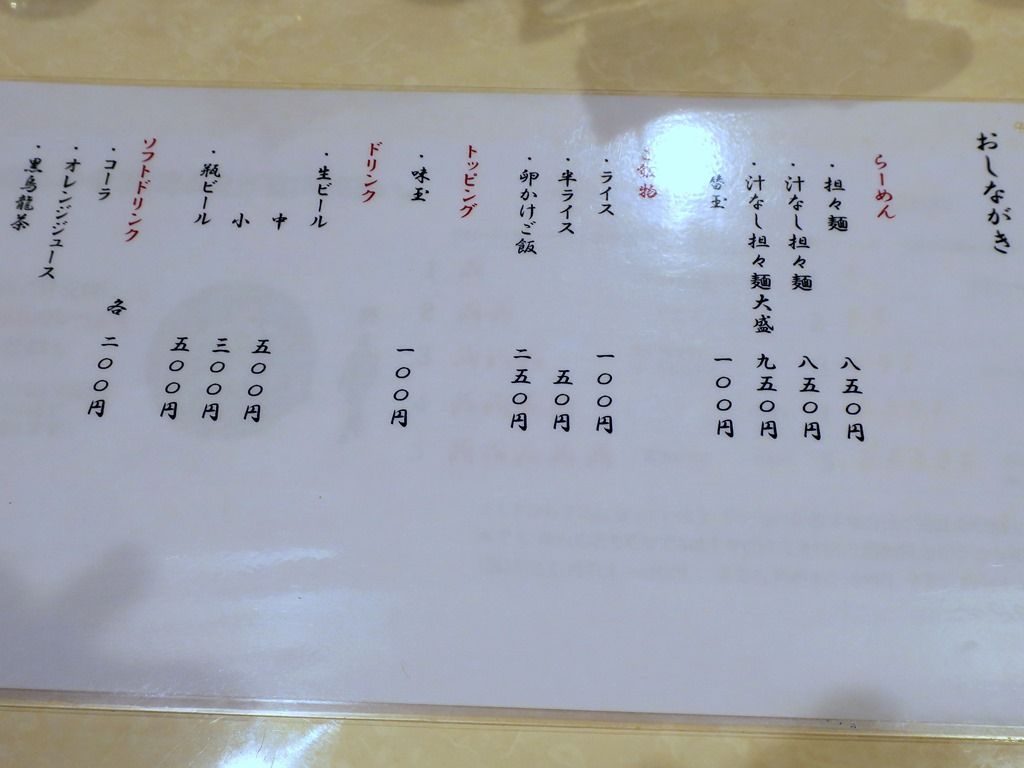 おしながき
らーめん
・担々麺 八五〇円
・汁なし担々麺 八五〇円
・汁なし担々麺大盛 九五〇円
替玉 一〇〇円
ご飯物
・ライス 一〇〇円
・半ライス 五〇円
・卵かけご飯 二五〇円
トッピング
・味玉 一〇〇円
ドリンク
・生ビール
中 五〇〇円
小 三〇〇円
・瓶ビール 五〇〇円
ソフトドリンク
・コーラ 各 二〇〇円
・オレンジジュース
・黒烏龍茶